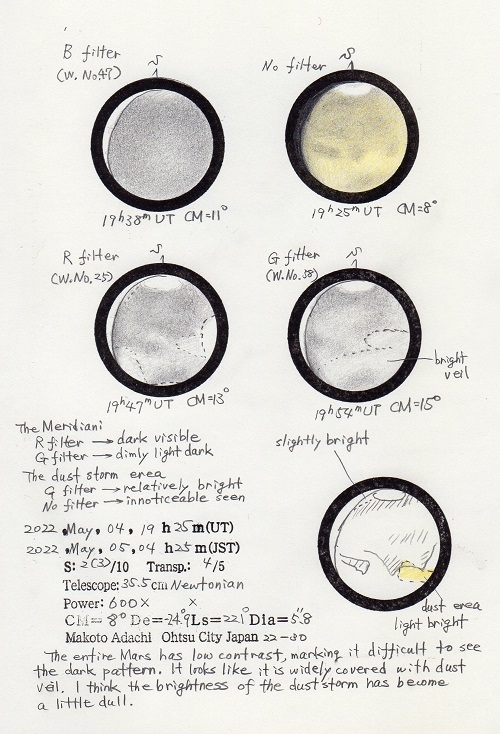 B filter
(W. No.47)
S
19h38mUT CM=11°
No filter
S
19h25mUT CM=8°
R filter
(W.No.25)
S
19h47mUT CM=13°
G filter
(W.No.58)
S
bright
veil
19h54mUT CM=15°
The Meridiani
R filter → dark visible
G filter → dimly light dark
The dust storm erea
G filter → relatively bright
No filter → innoticeable seen
slightly bright
dust erea
light bright
2022 .May, 04, 19 h 25 m(UT)
2022 .May, 05, 04 h 25 m(JST)
S: 2(3)/10 Transp.: 4/5
Telescope: 35.5 cm Newtonian
Power: 600× ×
CM= 8° De=-24.9 Ls=221° Dia=5".8
Makoto Adachi Ohtsu City Japan 22-80
The entire Mars has low contrast, marking it difficult to see
the dark pattern. It looks like it is widely covered with dust
veil. I think the brightness of the dust storm has become
a little dull.